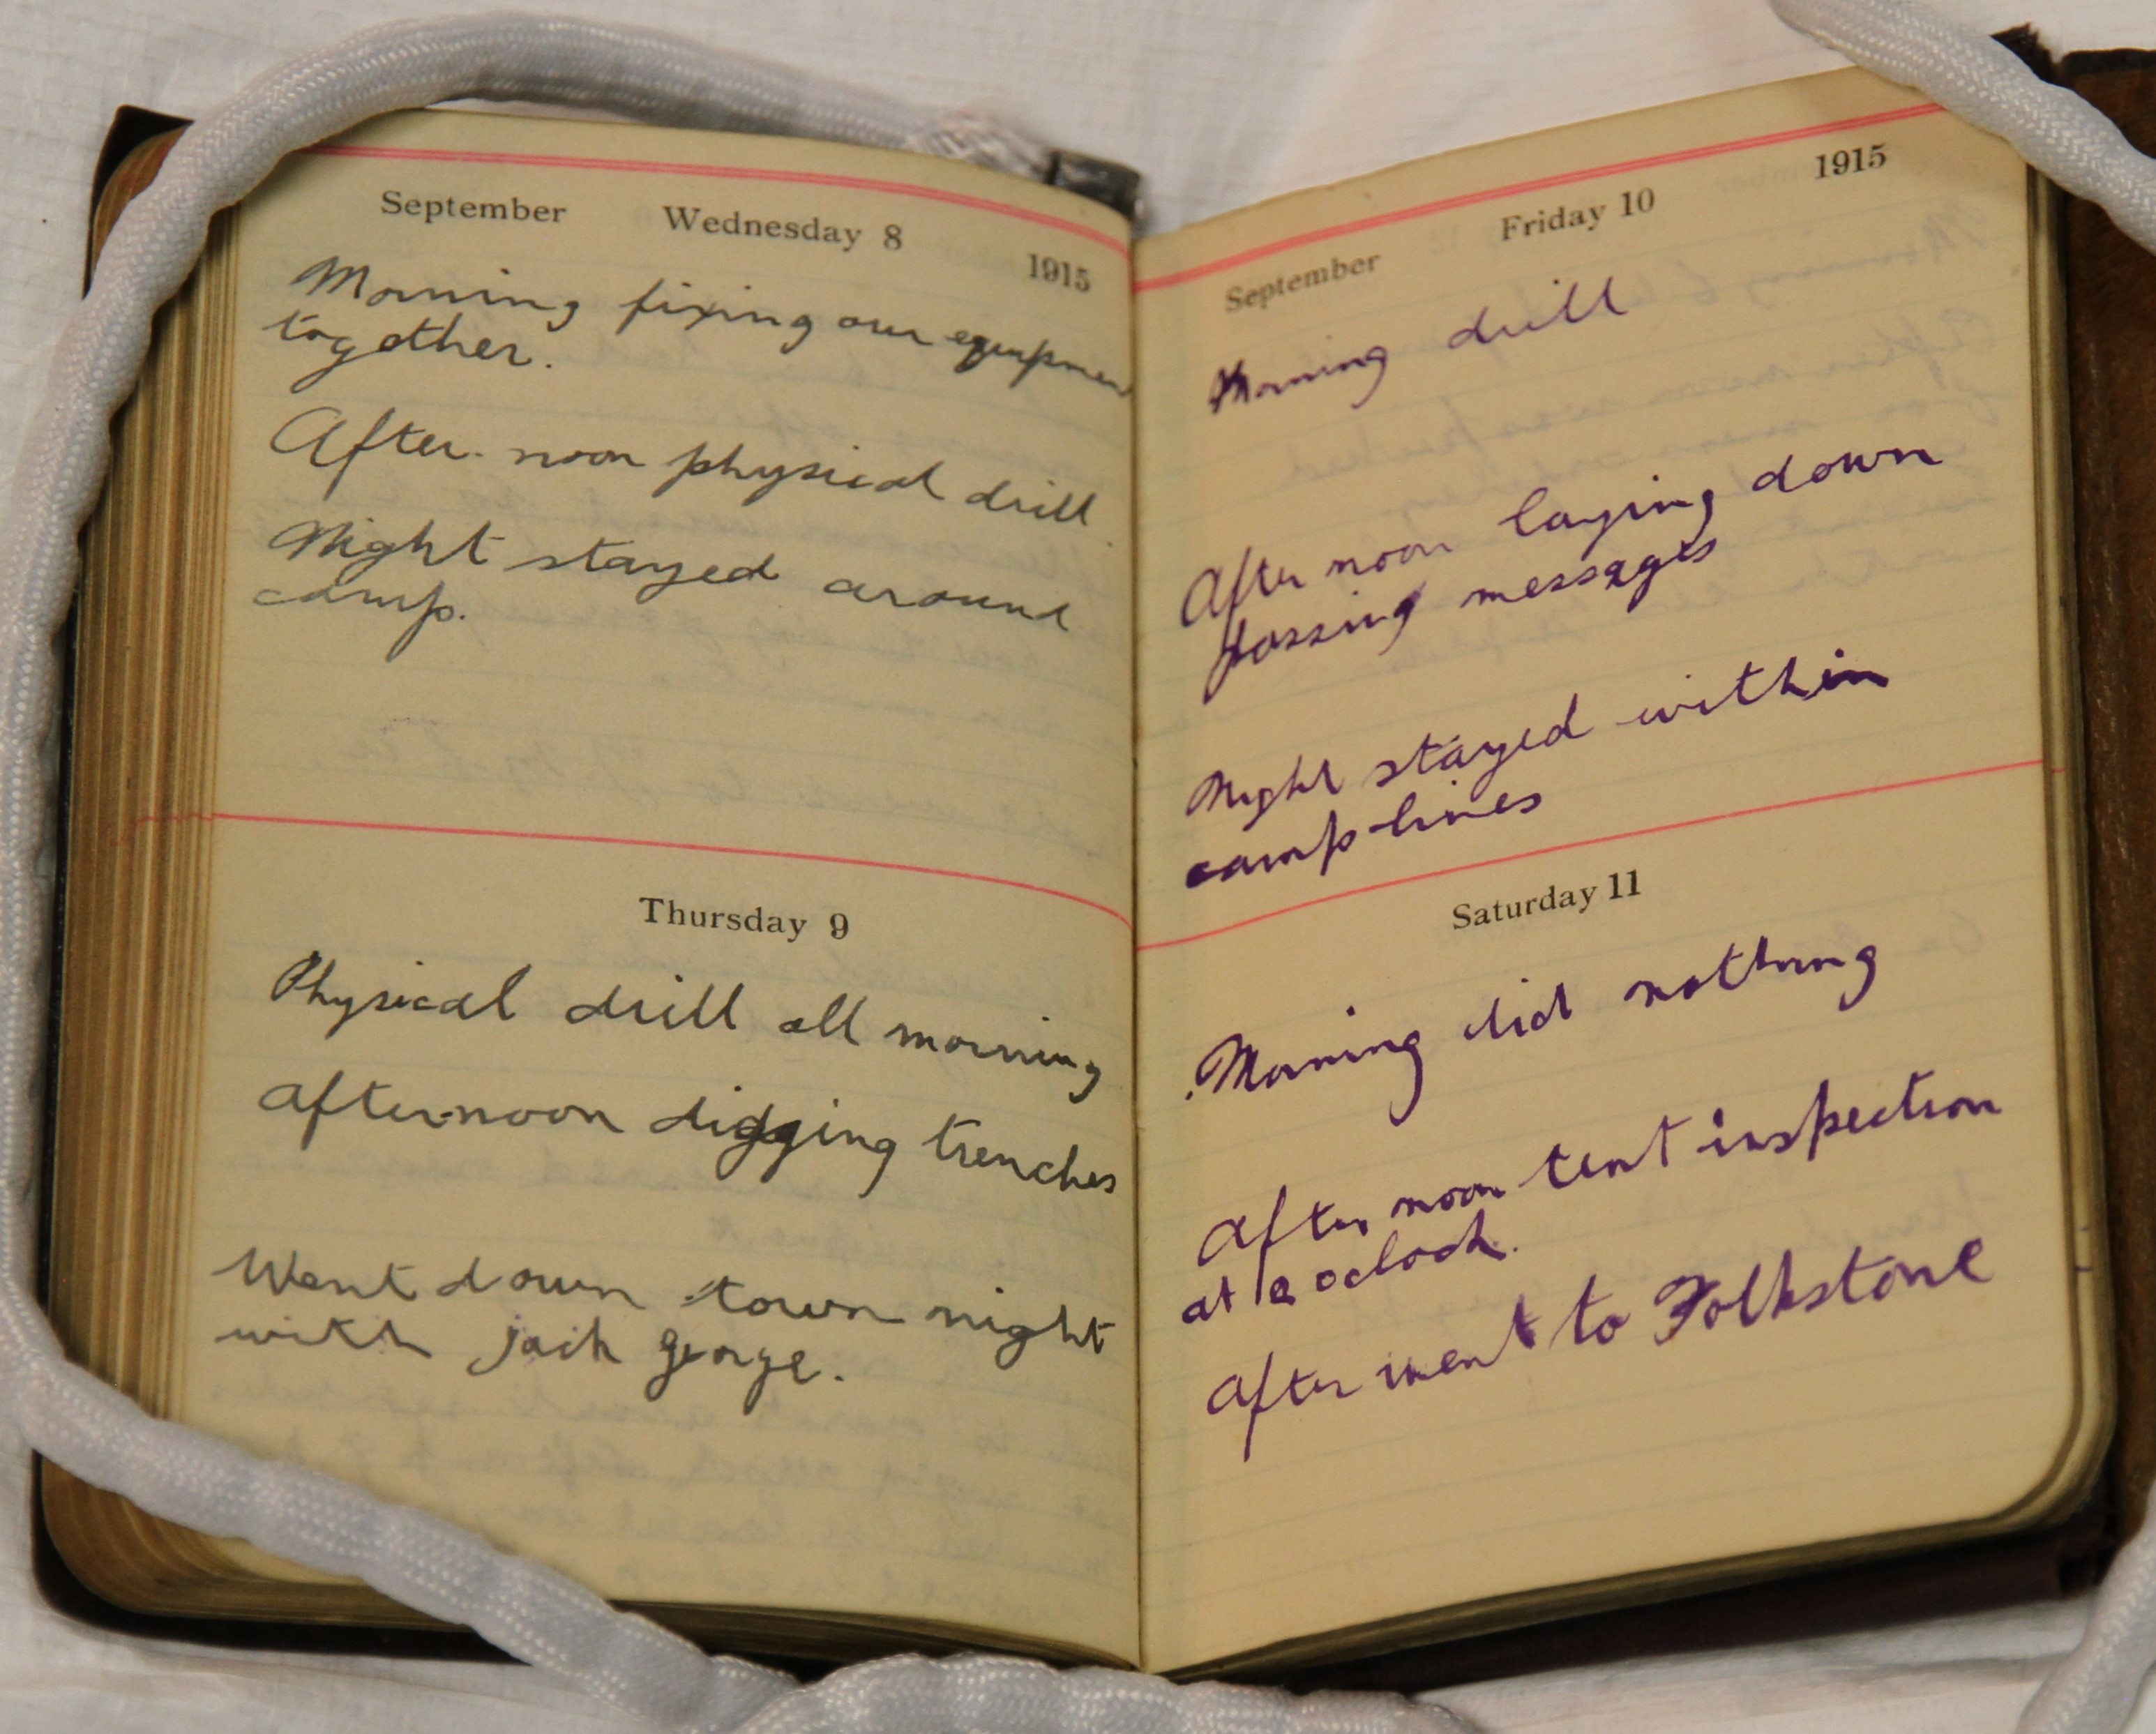 September Wednesday 8 1915
Morning fixing our equipmen
together.
After noon physical drill
Night stayed around
camp.
Thursday 9
Physical drill all morning
afternoon digging trenches
Went down town night
with jack george.
September Friday 10 1915
Morning drill
After noon laying down
passing messages
Night stayed within
camp-lines
Saturday 11
Morning did nothing
After noon tent inspection
at oclock.
After went to Folkstone